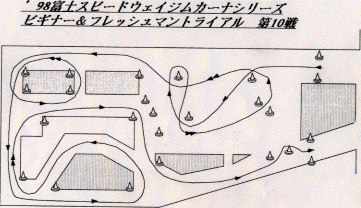 '98富士スピードウェイジムカーナシリーズ
ビギナー＆フレッシュマントライアル 第10戦